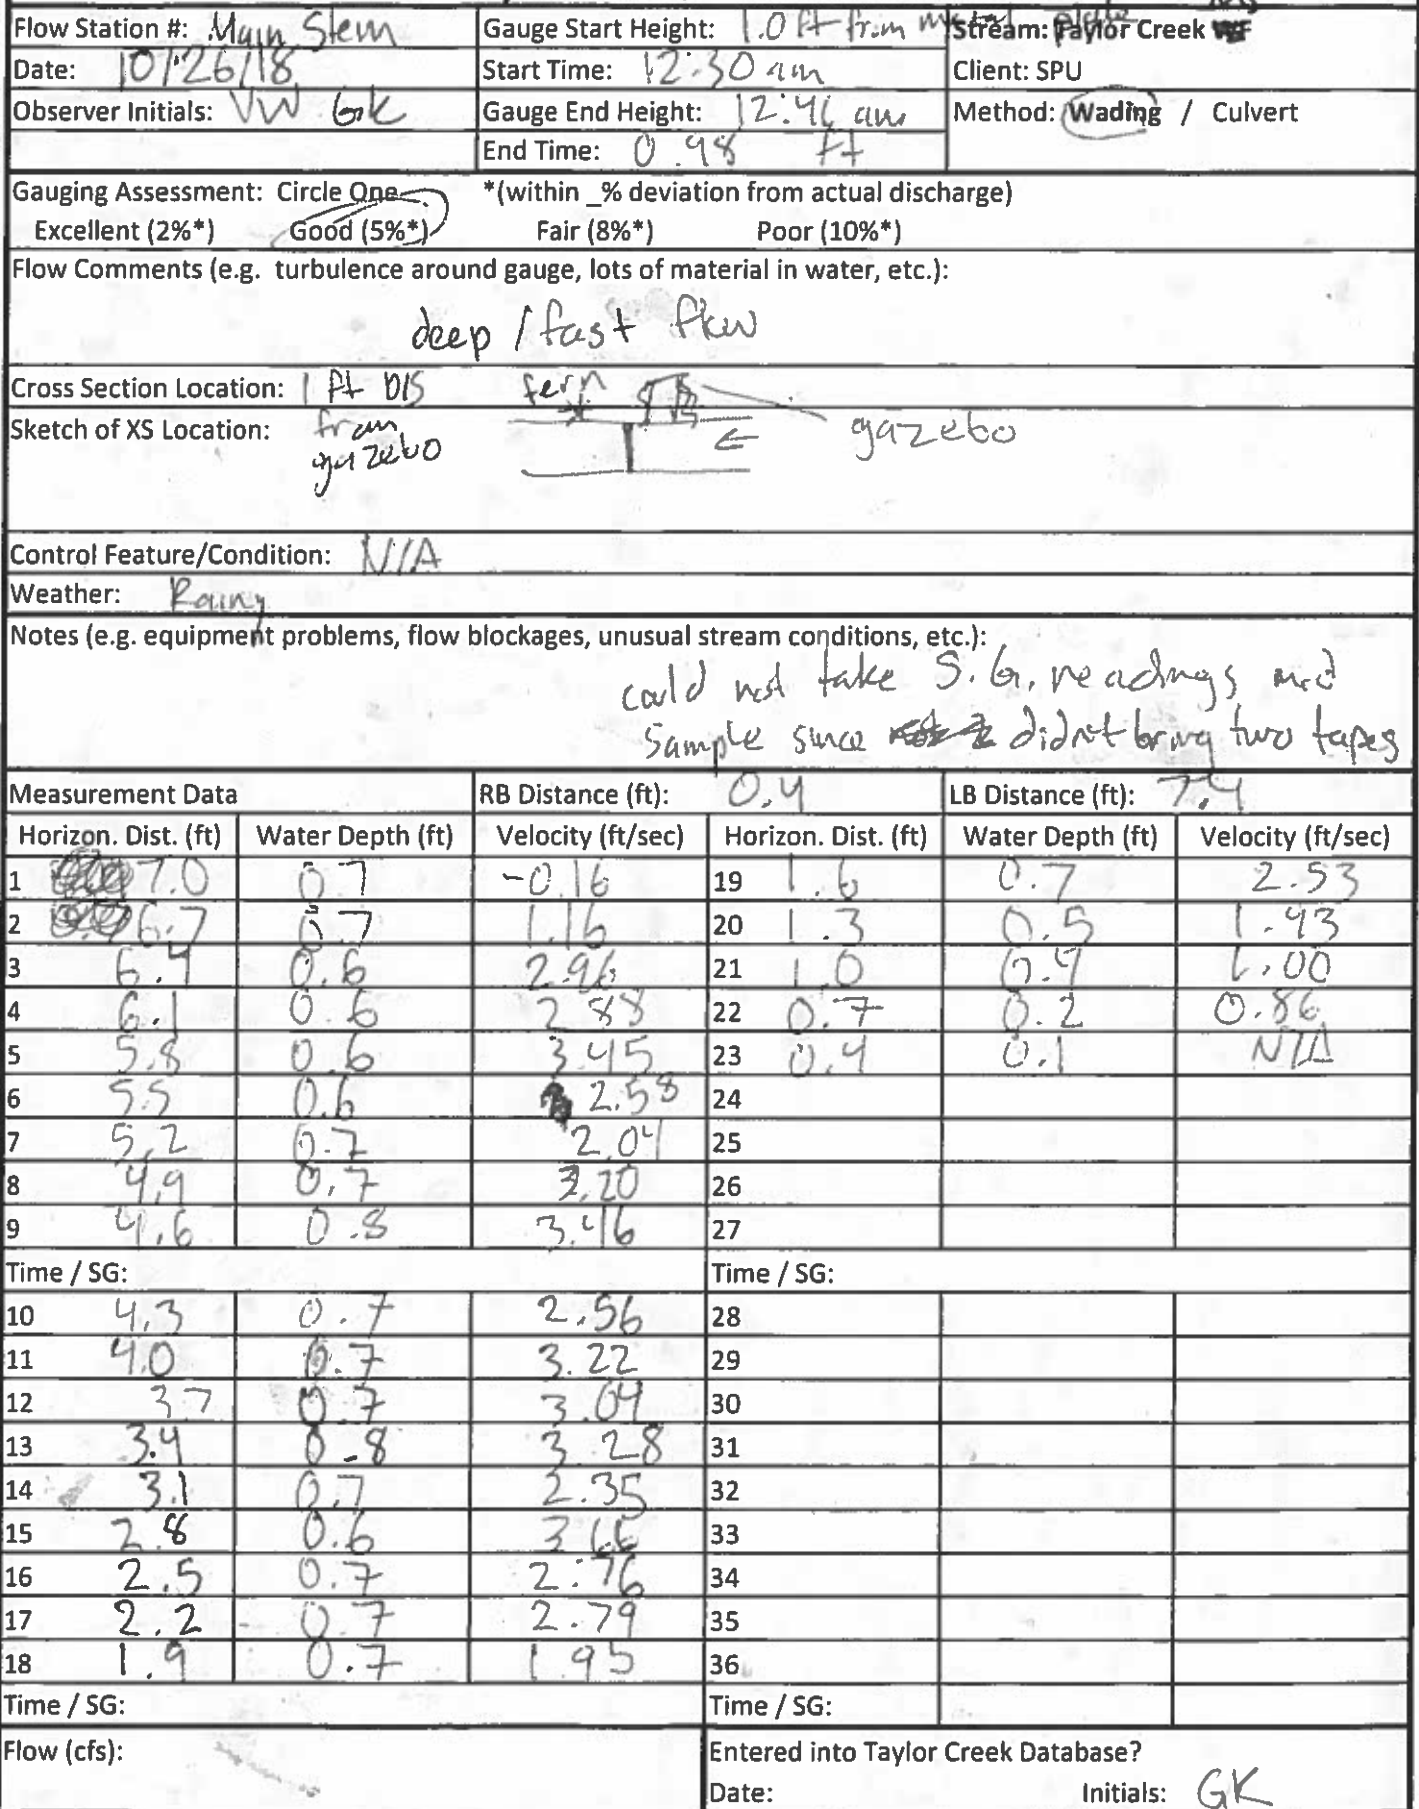 Flow Station #: Main Stem Gauge Start Height: 1.0 ft from metal plate Stream: Taylor Creek
Date: 10/26/18 Start Time: 12:30 am Client: SPU
Observer Initials: VW GK Gauge End Height: 12:46 am Method: Wading / Culvert
End Time: 0.98 ft
Gauging Assessment: Circle One *(within _% deviation from actual discharge)
Excellent (2%*) Good (5%*) Fair (8%*) Poor (10%*)
Flow Comments (e.g. turbulence around gauge, lots of material in water, etc.):
deep / fast flow
Cross Section Location: 1 ft D/S fern
Sketch of XS Location: from gazebo
gazebo
Control Feature/Condition: N/A
Weather: Rainy
Notes (e.g. equipment problems, flow blockages, unusual stream conditions, etc.):
could not take S.G. readings mid
sample since didn't bring two tapes
Measurement Data RB Distance (ft): 0.4 LB Distance (ft): 7.4
Horizon. Dist. (ft) Water Depth (ft) Velocity (ft/sec) Horizon. Dist. (ft) Water Depth (ft) Velocity (ft/sec)
1 7.0 0.7 -0.16 19 1.6 0.7 2.53
2 6.7 0.7 1.16 20 1.3 0.5 1.93
3 6.4 0.6 2.96 21 1.0 0.4 1.00
4 6.1 0.6 2.88 22 0.7 0.2 0.86
5 5.8 0.6 3.45 23 0.4 0.1 N/A
6 5.5 0.6 2.58 24
7 5.2 0.7 2.04 25
8 4.9 0.7 3.20 26
9 4.6 0.8 3.46 27
Time / SG: Time / SG:
10 4.3 0.7 2.56 28
11 4.0 0.7 3.22 29
12 3.7 0.7 3.04 30
13 3.4 0.8 3.28 31
14 3.1 0.7 2.35 32
15 2.8 0.6 3.66 33
16 2.5 0.7 2.76 34
17 2.2 0.7 2.79 35
18 1.9 0.7 1.95 36
Time / SG: Time / SG:
Flow (cfs): Entered into Taylor Creek Database?
Date: Initials: GK